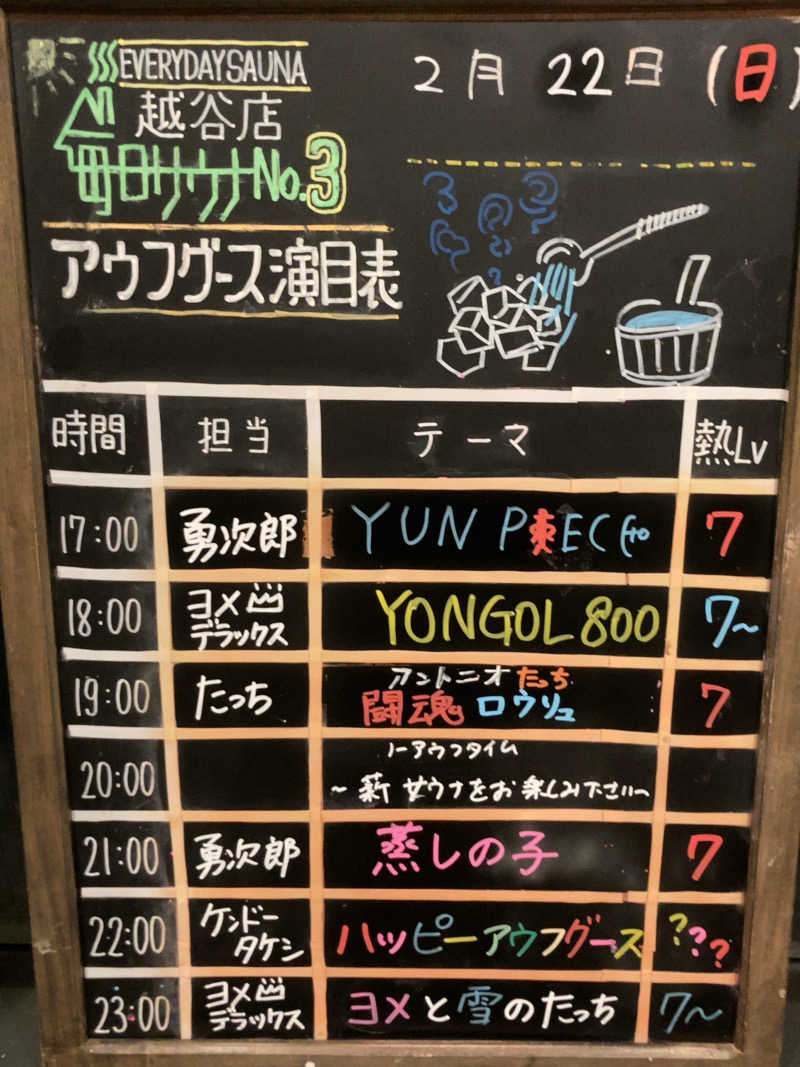 EVERYDAYSAUNA
越谷店
毎日サウナNo.3
アウフグース演目表
2月 22日(日)
時間 担当 テーマ 熱Lv
17:00 勇次郎 YUN P東ECE 7
18:00 ヨメ デラックス YONGOL 800 7~
19:00 たっち アントニオたっち 闘魂 ロウリュ 7
20:00 ノーアウフタイム
~薪サウナをお楽しみ下さい~
21:00 勇次郎 蒸しの子 7
22:00 ケンドー タケシ ハッピーアウフグース ???
23:00 ヨメ デラックス ヨメと雪のたっち 7~